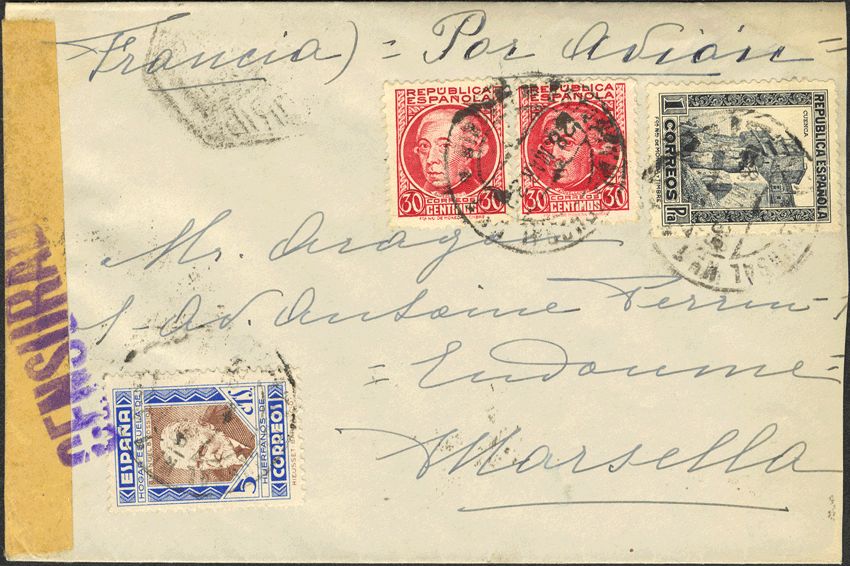 Francia) = Por Avión =
REPÚBLICA ESPAÑOLA
30 CENTIMOS 30
CORREOS
REPÚBLICA ESPAÑOLA
30 CENTIMOS 30
CORREOS
1 CORREOS Pta
CUENCA
REPUBLICA ESPAÑOLA
Mr. Aragon
1 - Av. Antoine Perrin -
= Endoume =
Marsella
CENSURA
ESPAÑA
HOGAR ESCUELA DE
5 cts
HUERFANOS DE
CORREOS